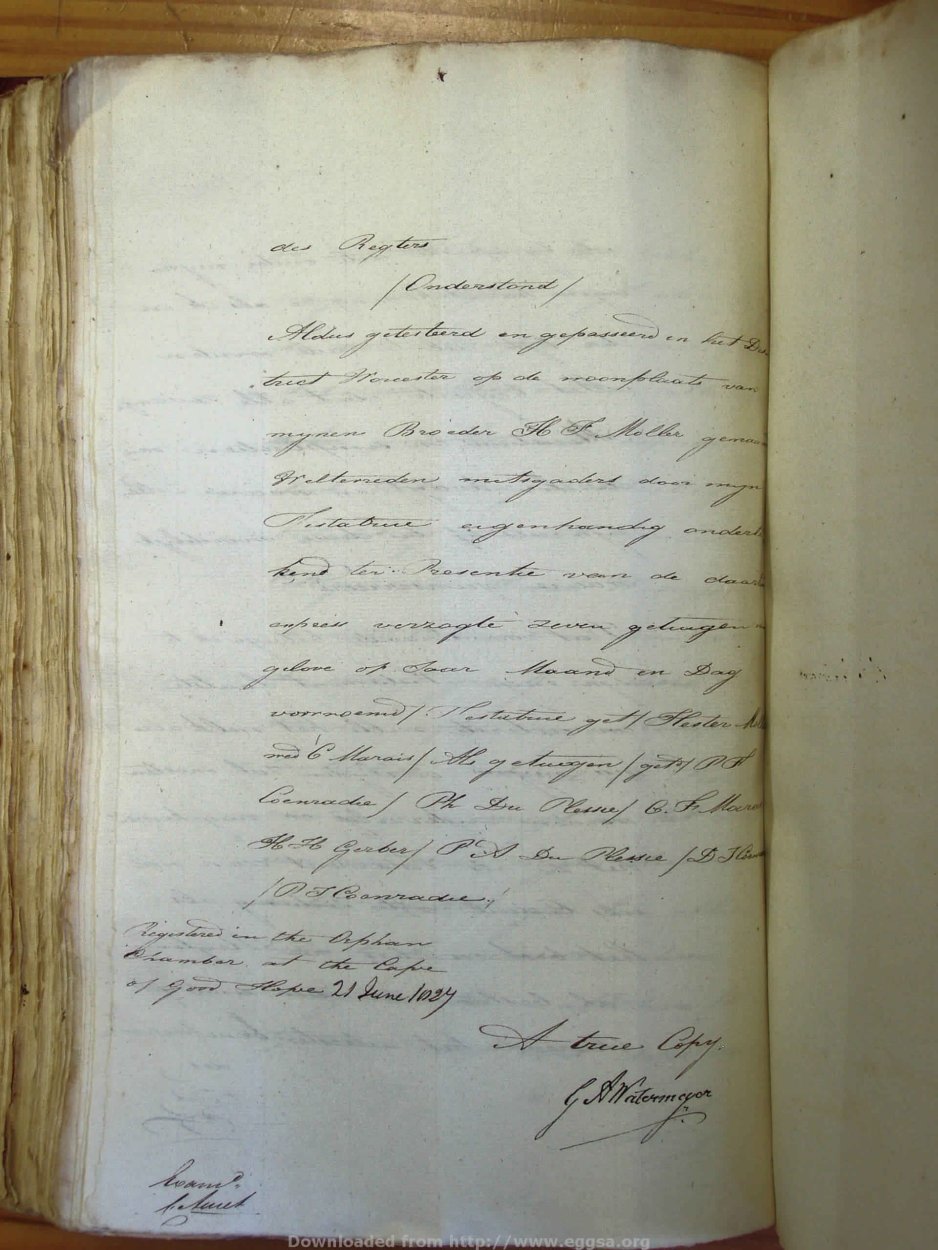 des Regters
/Onderstond/
Aldus getesteerd en gepasseerd in het Dis
trict Worcester op de woonplaats van
mynen Broeder H F Moller genaam
Weltevreden mitsgaders door myn
Testatrice eigenhandig onderte
kend ter Presentie van de daartoe
expres verzogte zeven getuigen
gelove op Jaar Maand en Dag
voornoemd/ Testatrice get/ Hester
C Marais/ Als getuigen /get/ P F
Coenradie/ Ph Du Plessie/ C. F. Marais
H H Gerber/ P A Du Plessie /D
/P J Coenradie/
Registered in the Orphan
Chamber at the Cape
of Good Hope 21 June 1827
A true Copy.
G A Watermeyer
Examd.
Downloaded from http://www.eggsa.org